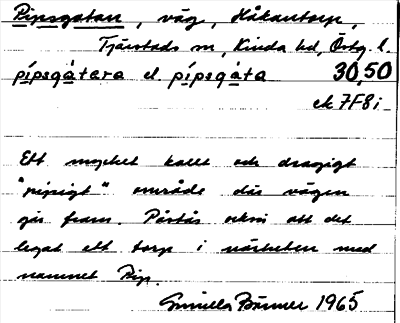 Pipsgatan, väg, Håkantorp,
Tjärstads sn, Kinda hd, Östg. l.
pípsgàtara el. pípsgàta 30,50
ek 7F8i
Ett mycket kallt och dragigt
"pipsigt" område där vägen
går fram. Påstås också att det
legat ett torp i närheten med
namnet Pip.
Gunilla 1965